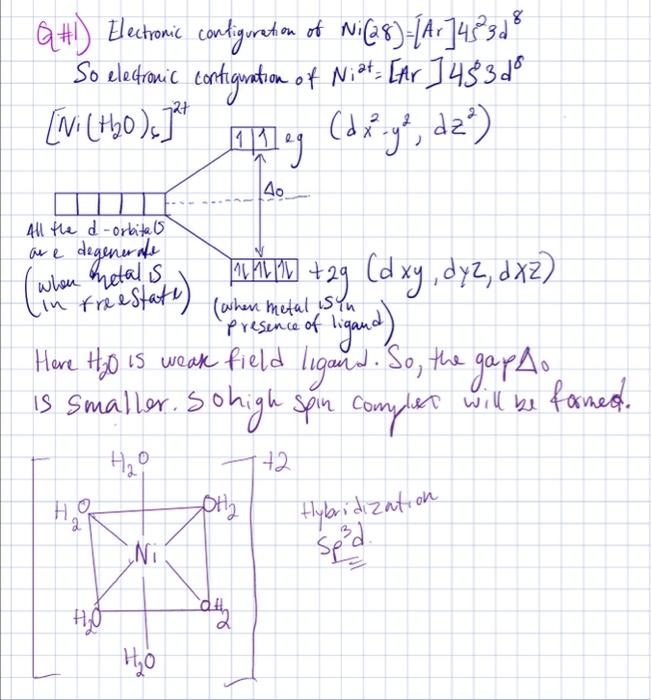 Q#1) Electronic configuration of Ni(28)=[Ar]4s²3d⁸
So electronic configuration of Ni²⁺=[Ar]4s⁰3d⁸
[Ni(H₂O)₆]²⁺
1 1 eg (dx²-y², dz²)
Δo
All the d-orbitals
are degenerate
(when metal is
in free state)
1l 1l 1l t2g (dxy, dyz, dxz)
(when metal is in
presence of ligand)
Here H₂O is weak field ligand. So, the gap Δo
is smaller. So high spin complex will be formed.
H₂O +2
H₂O OH₂
Hybridization
sp³d.
Ni
H₂O OH₂
H₂O